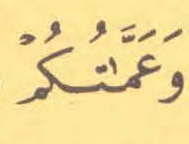 وَعَمَّٰتُكُمْ